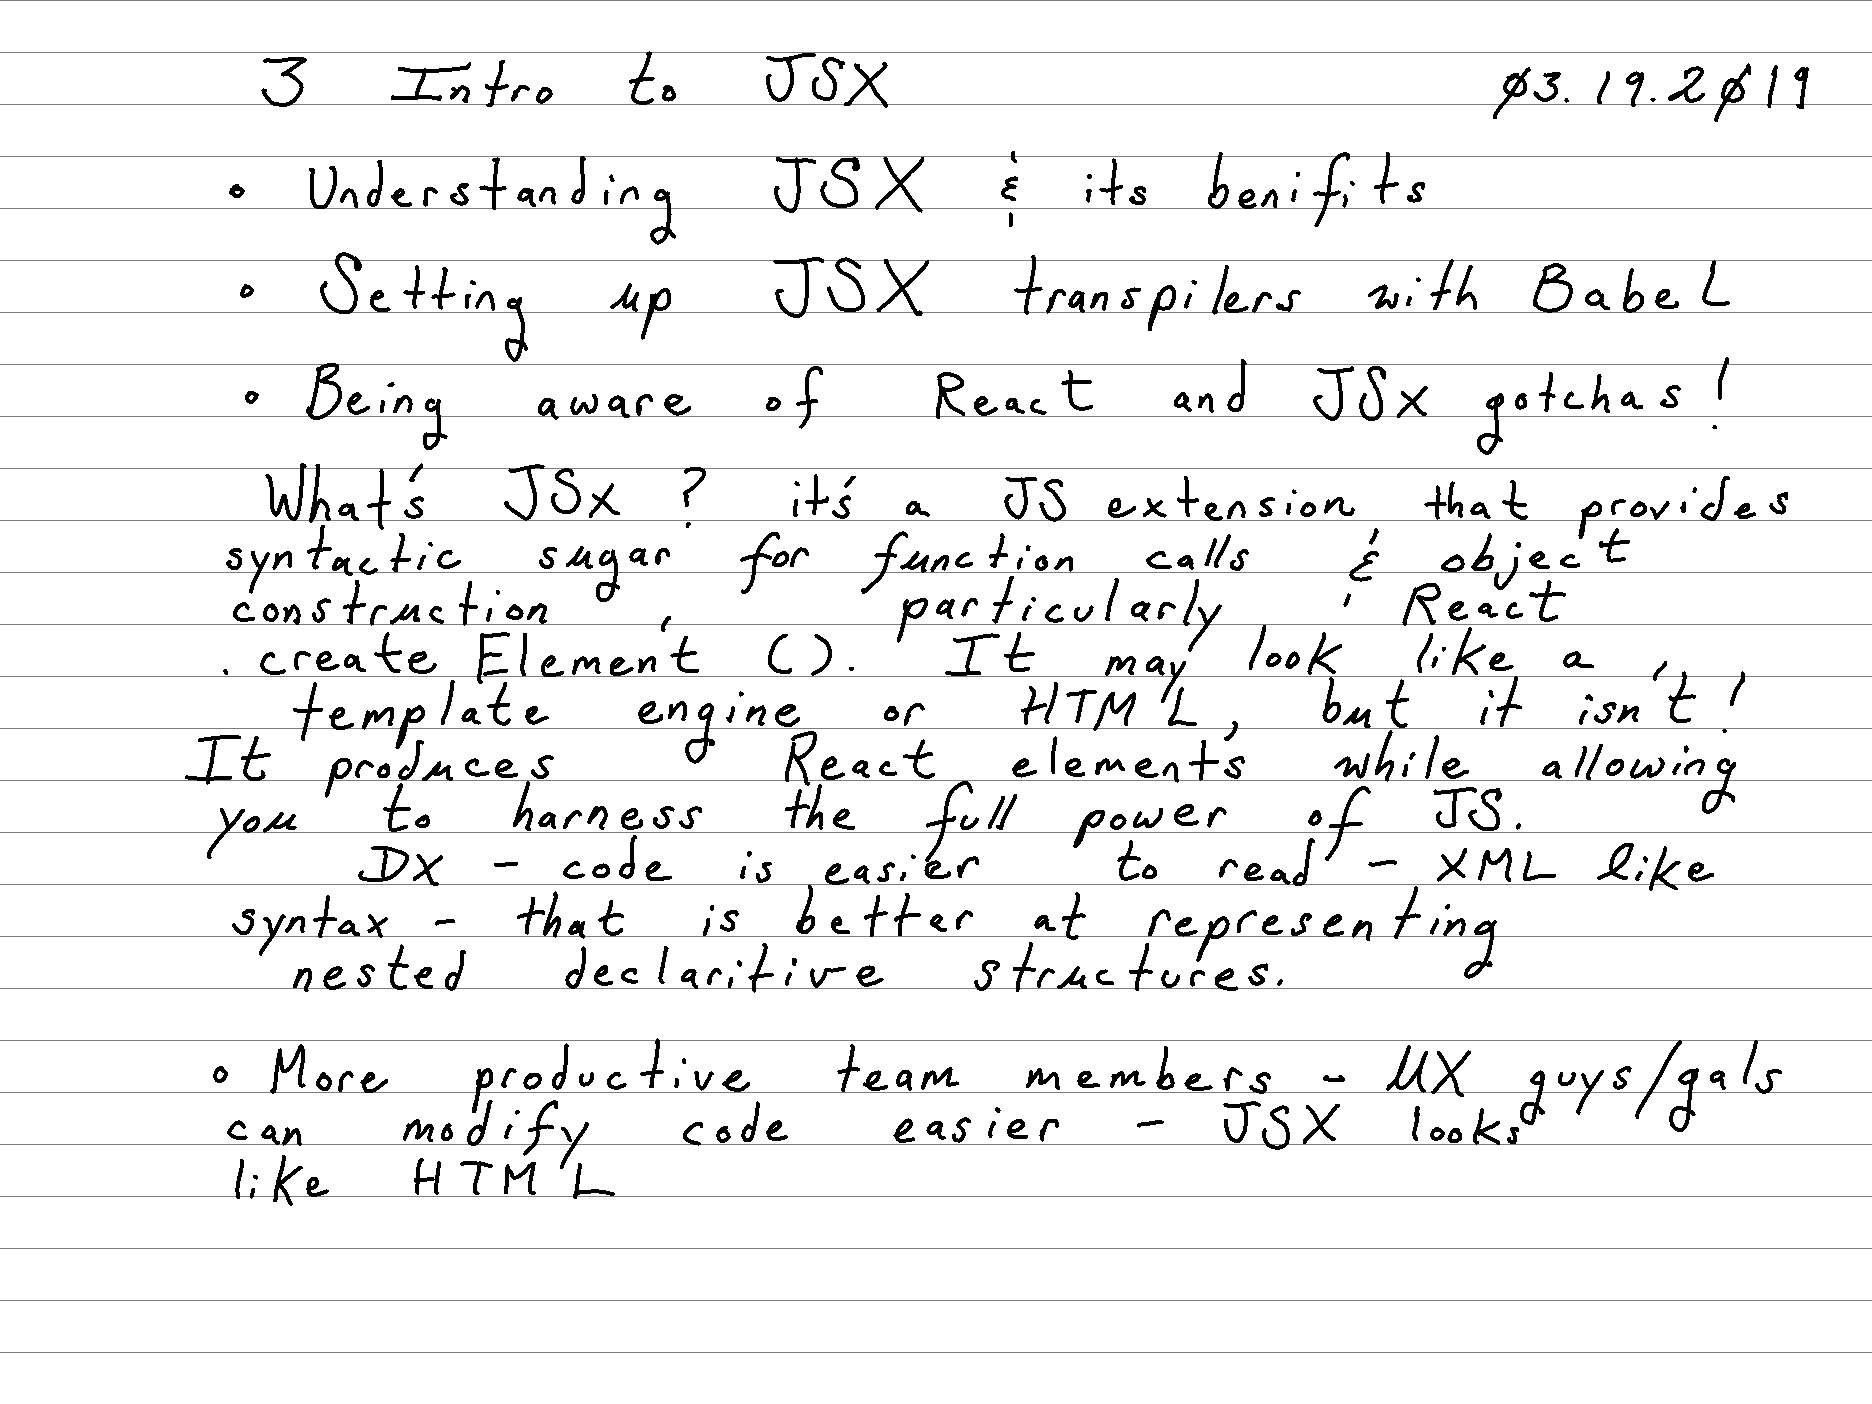 3 Intro to JSX 03.19.2019
• Understanding JSX & its benifits
• Setting up JSX transpilers with Babel
• Being aware of React and JSX gotchas!
What's JSX? it's a JS extension that provides
syntactic sugar for function calls & object
construction, particularly React
.createElement(). It may look like a
template engine or HTML, but it isn't!
It produces React elements while allowing
you to harness the full power of JS.
DX - code is easier to read - XML like
syntax - that is better at representing
nested declaritive structures.
• More productive team members - UX guys/gals
can modify code easier - JSX looks
like HTML